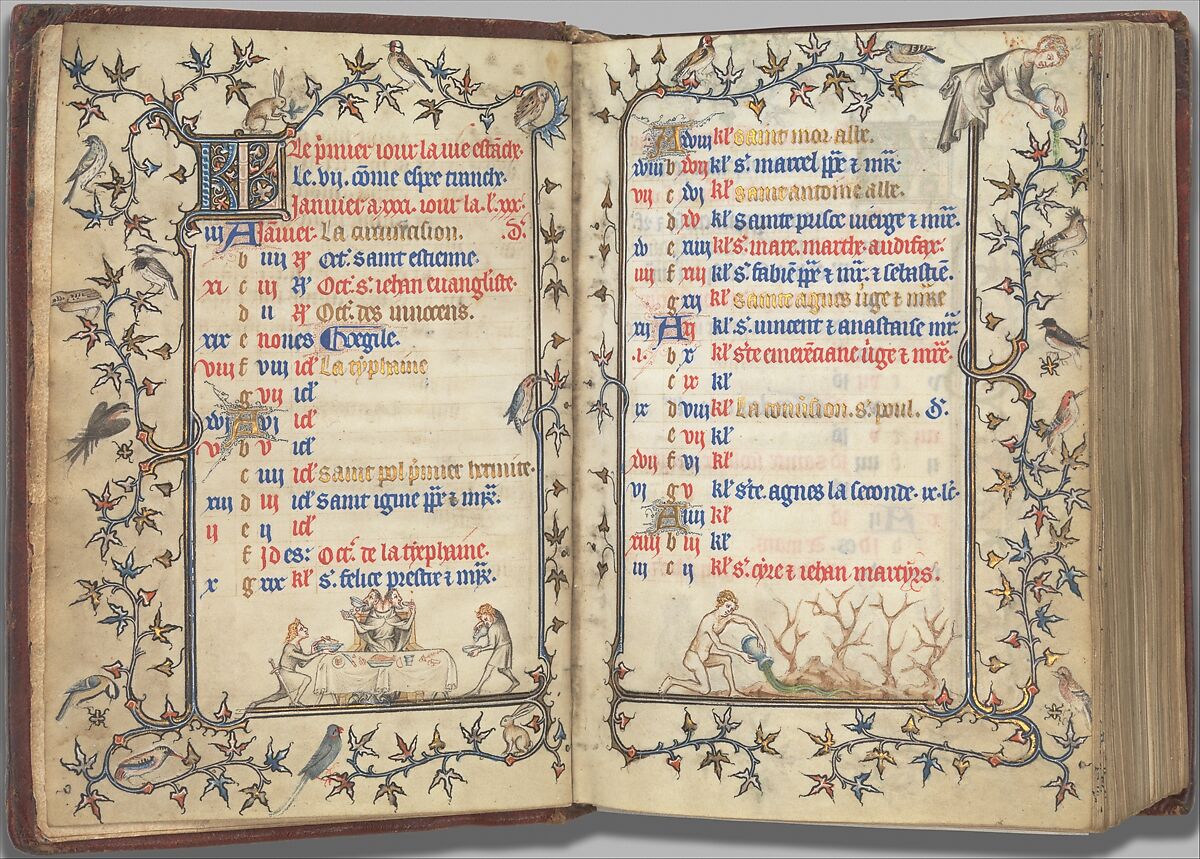 Le p̄mier iour la uie estāche
Le .vii. cōme espee tranche.
Januier a .xxxi. iour la l'. xxx.
iij A Januier. La circuncision. D.
b iiij N̄ Oct'. saint estienne.
xi c iij N̄ Oct'. s'. iehan euangliste.
d ij N̄ Oct'. des innocens.
xix e nones
viij f viij id' La typhaine
g vij id'
xvj A vj id'
v b v id'
c iiij id' saint pol p̄mier hermite.
xiij d iij id' saint igine pp̄e ⁊ mr̄.
ij e ij id'
f Jdes: Oct'. de la typhaine.
x g xix kl' s'. felice prestre ⁊ mr̄.
A xviij kl' saint mor abbe.
xviij b xvij kl' s'. marcel pp̄e ⁊ mr̄.
vij c xvj kl' saint antoine abbe.
d xv kl' sainte prisce uierge ⁊ mr̄e.
xv e xiiij kl' s'. marc. marthe. audifax.
iiij f xiij kl' s'. fabiē pp̄e ⁊ mr̄. ⁊ sebastiē.
g xij kl' sainte agnes ūge ⁊ mr̄e
xij A xj kl' s'. uincent ⁊ anastaise mr̄.
.i. b x kl' s'te emerēciane ūge ⁊ mr̄e.
c ix kl'
ix d viij kl' La conūsion. s'. poul. D.
e vij kl'
xvij f vj kl'
vj g v kl' s'te. agnes la seconde. ix. lc̄.
A iiij kl'
xiiij b iij kl'
iij c ij kl' s'. cyre ⁊ iehan martyrs.